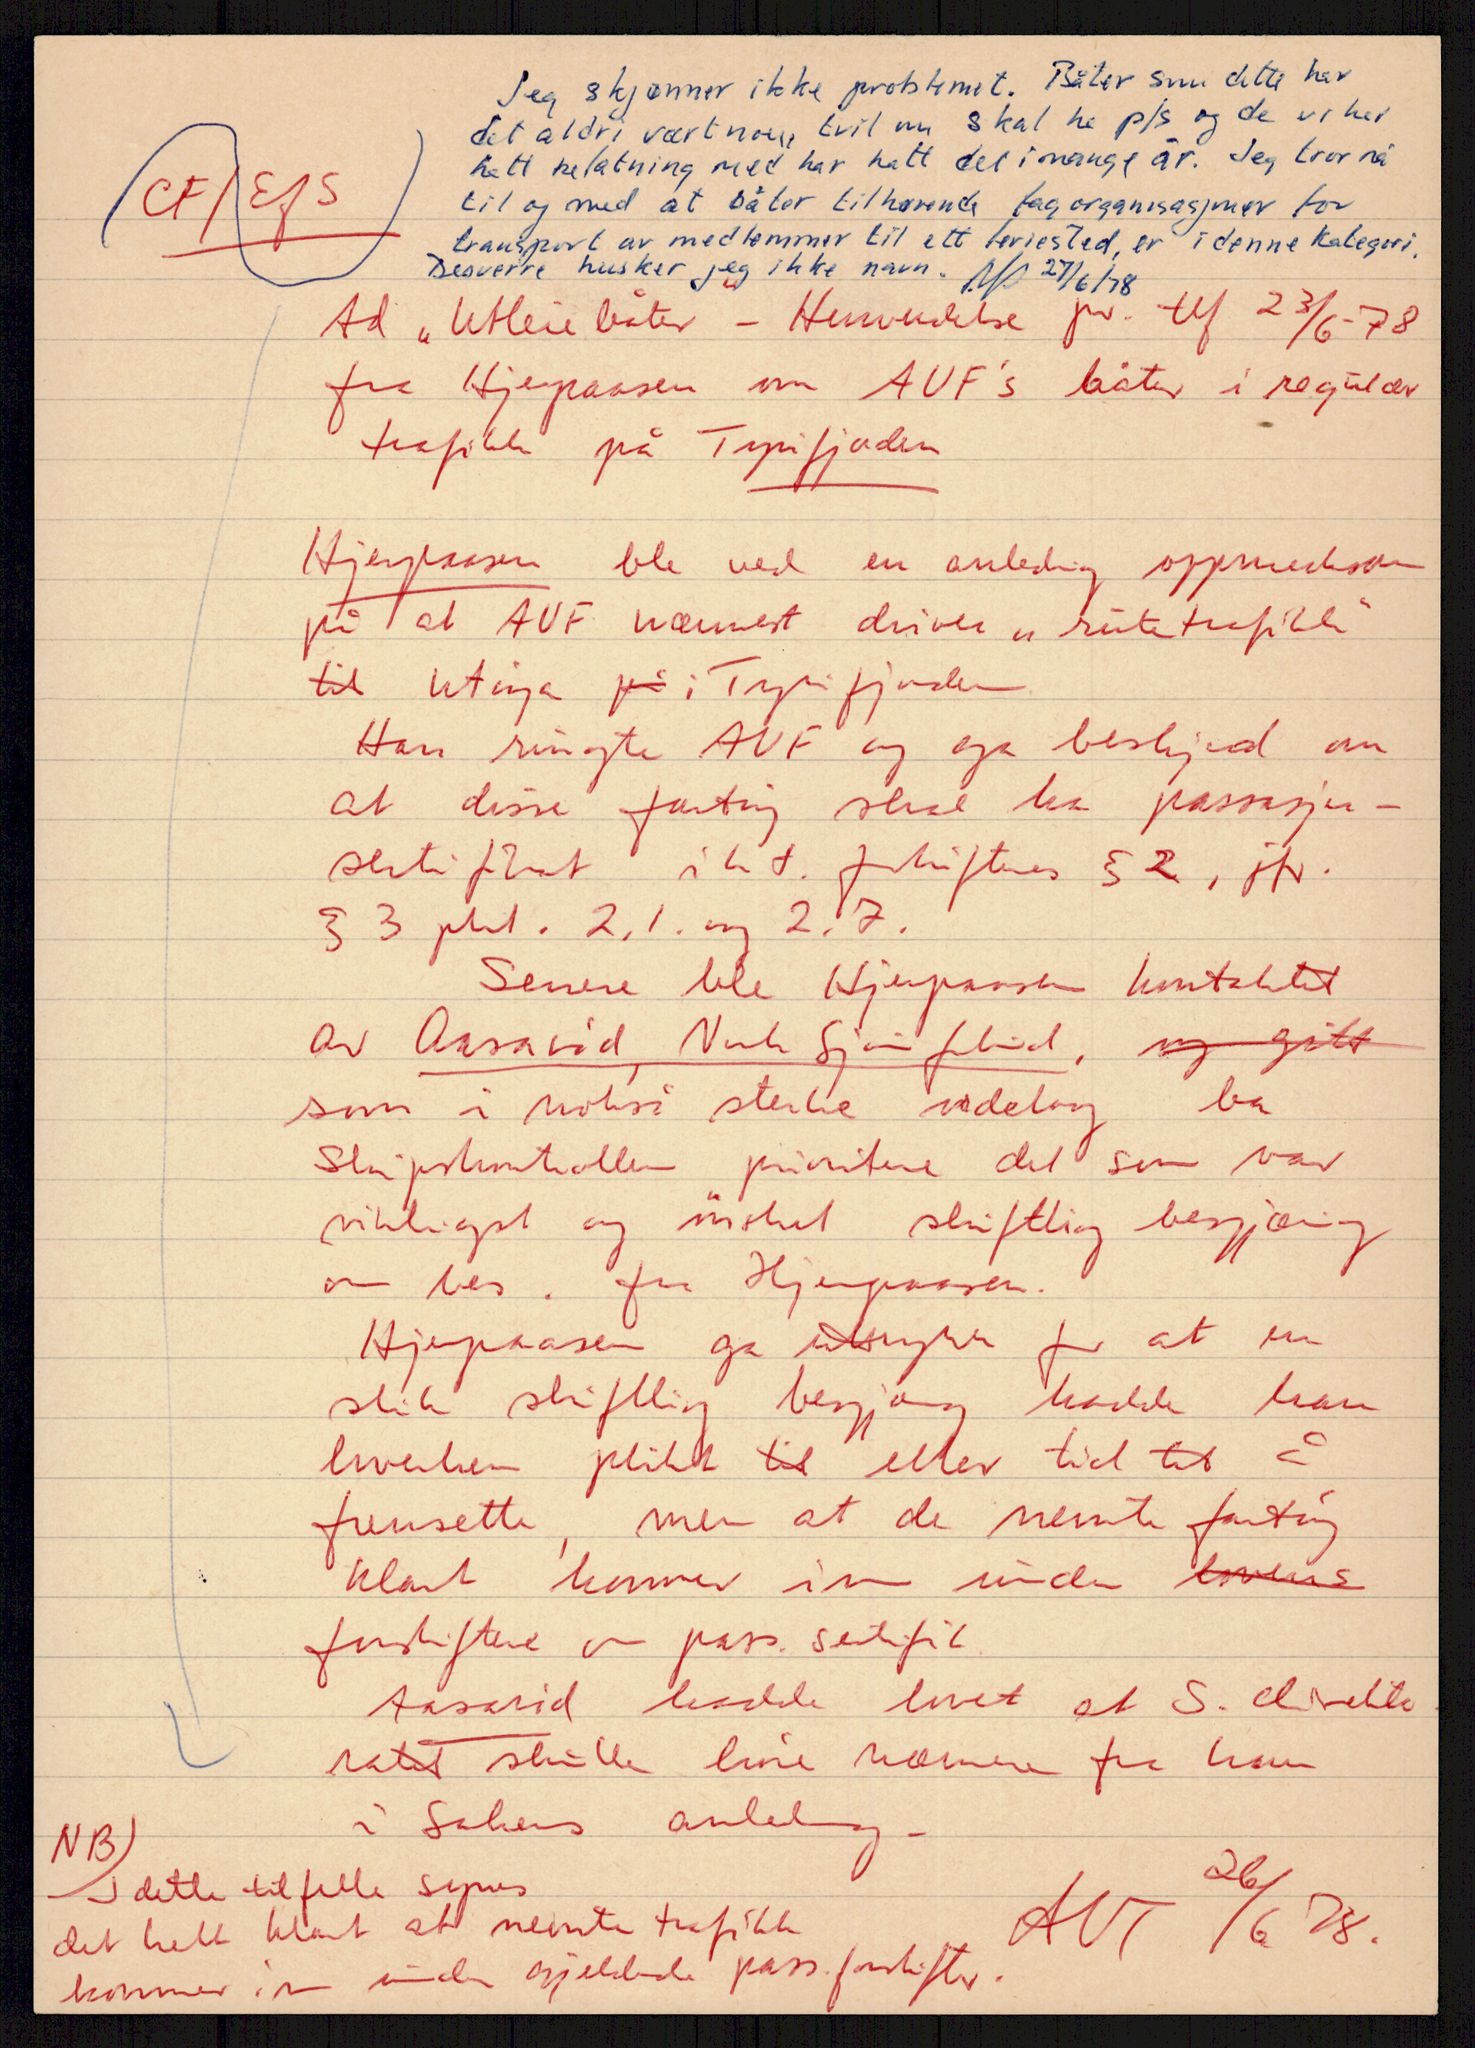 Jeg skjønner ikke problemet. Båter som dette har
det aldri vært noen tvil om skal ha p/s og de vi har
hatt befatning med har hatt det i mange år. Jeg tror nå
til og med at båter tilhørende fagorganisasjoner for
transport av medlemmer til ett feriested, er i denne kategori.
Desverre husker jeg ikke navn. 27/6/78
CF/EfS
Ad "Utleiebåter" - Henvendelse pr. tlf 23/6-78
fra Hjerpaasen om AUF's båter i regulær
trafikk på Tyrifjorden
Hjerpaasen ble ved en anledning oppmerksom
på at AUF nærmest driver "rutetrafikk"
til Utøya på i Tyrifjorden
Han ringte AUF og ga beskjed om
at disse fartøy skal ha passasjer-
sertifikat i h.t. forskriftenes § 2, jfr.
§ 3 pkt. 2.1. og 2.7.
Senere ble Hjerpaasen kontaktet
av Aasarød, Norsk Sjømannsforbund, og gitt
som i nokså sterke ordelag ba
Skipskontrollen prioritere det som var
viktigst og ønsket skriftlig begjæring
om bes. fra Hjerpaasen.
Hjerpaasen ga uttrykk for at en
slik skriftlig begjæring hadde han
hverken plikt til eller tid til å
fremsette, men at de nevnte fartøy
klart kommer inn under lovens
forskriftene om pass. sertifik.
Aasarød hadde lovet at S. direkto-
ratet skulle høre nærmere fra ham
i sakens anledning -
NB)
I dette tilfelle synes
det helt klart at nevnte trafikk
kommer inn under gjeldende pass.forskrifter.
AVT 26/6 78.